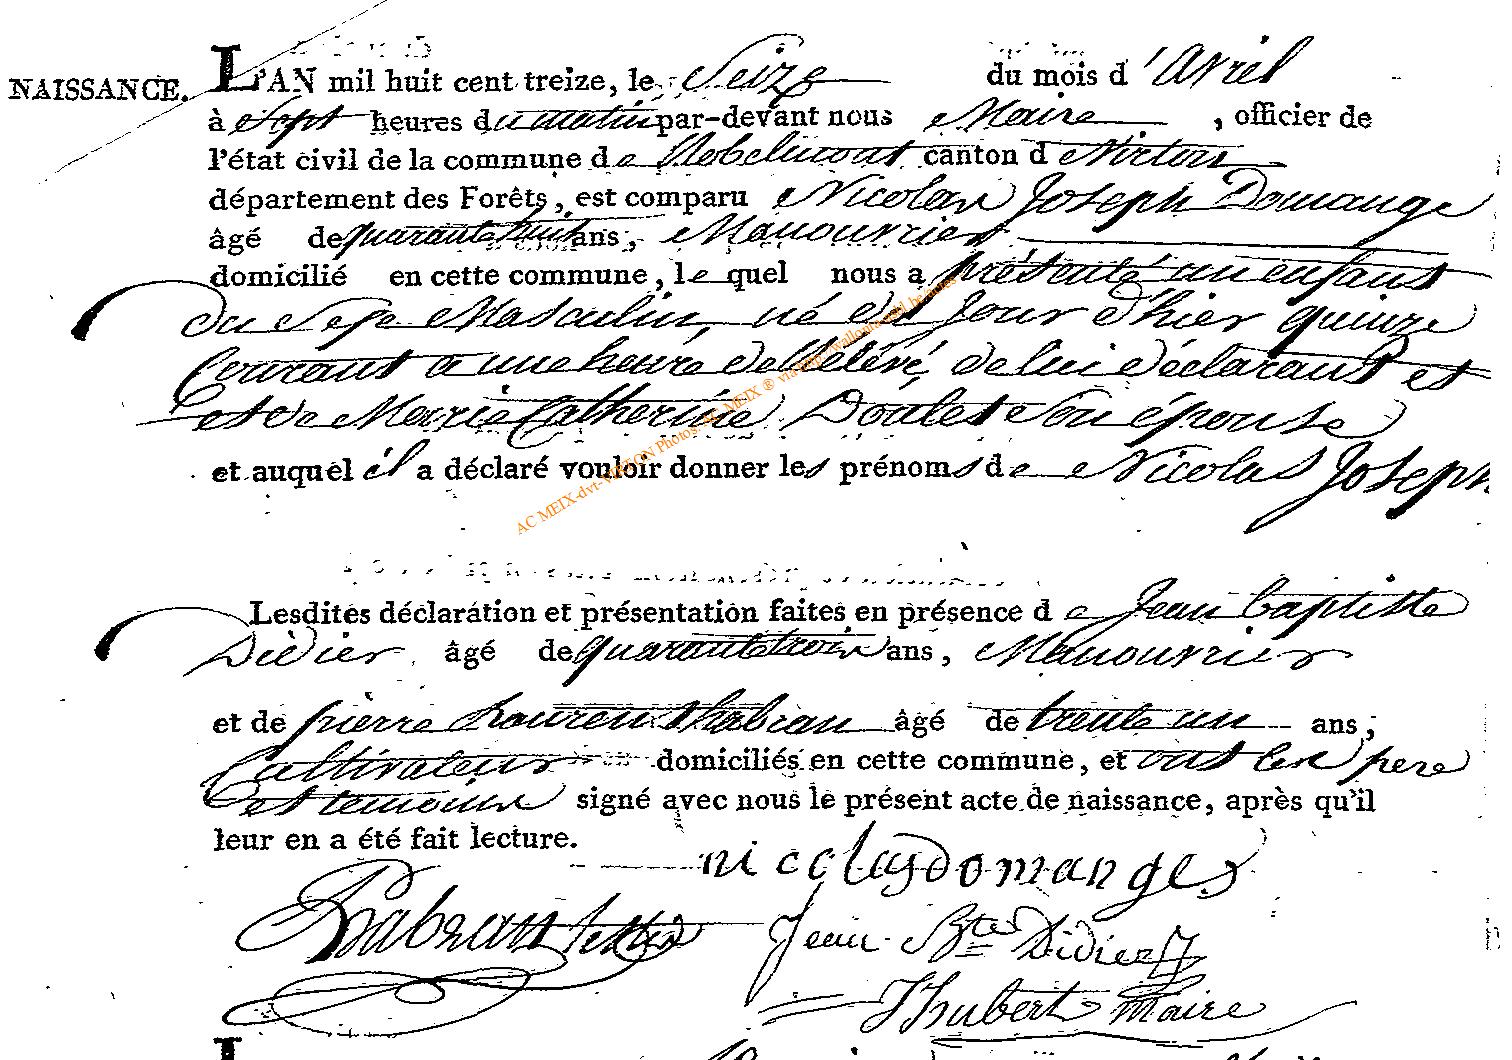 NAISSANCE. L'AN mil huit cent treize, le Seize du mois d'Avril
à Sept heures du matin par-devant nous Maire, officier de
l'état civil de la commune de Robelmont canton d Virton
département des Forêts, est comparu Nicolas Joseph Domange
âgé de quarante huit ans, Manouvrier
domicilié en cette commune, le quel nous a présenté un enfant
du Sexe Masculin, né du Jour d'hier quinze
Courant a une heure de relevé, de lui déclarant et
et de Marie Catherine Doulet Son épouse
et auquel il a déclaré vouloir donner les prénoms de Nicolas Joseph
Lesdites déclaration et présentation faites en présence de Jean baptiste
Didier âgé de quarante trois ans, Manouvrier
et de pierre Lauren thabran âgé de trente un ans,
Cultivateur domiciliés en cette commune, et ont les pere
et temoins signé avec nous le présent acte de naissance, après qu'il
leur en a été fait lecture.
nicolas domange
Jean Bte Didier
Thubert Maire
AC MEIX-dvt-VIRTON Photos: AC MEIX ® via